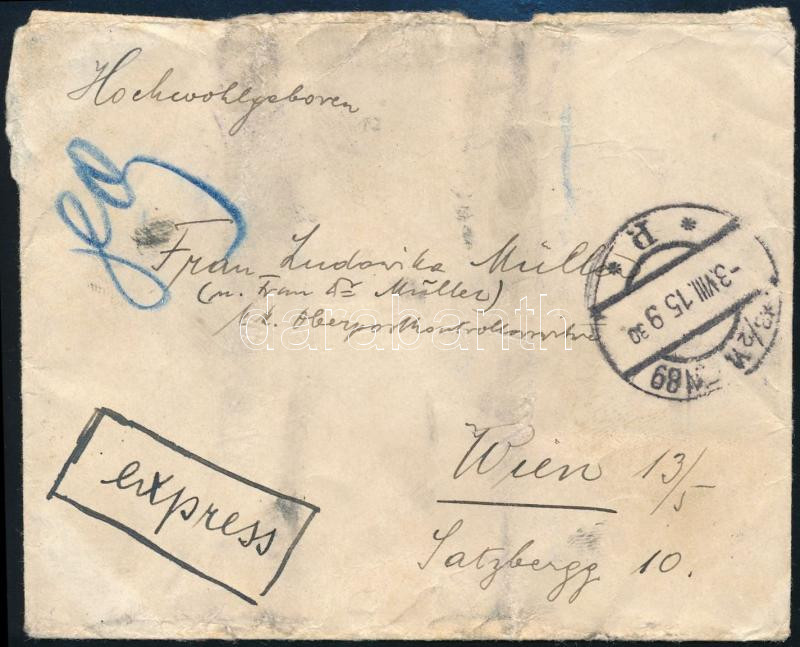 Hochwohlgeboren
Frau Ludowika Müller
(u. Frau Dr Müller)
k. k. Oberpostkontrollorswitwe
express
Wien 13/5
Satzbergg 10.
-3.VIII.15 9 30
89
darabanth